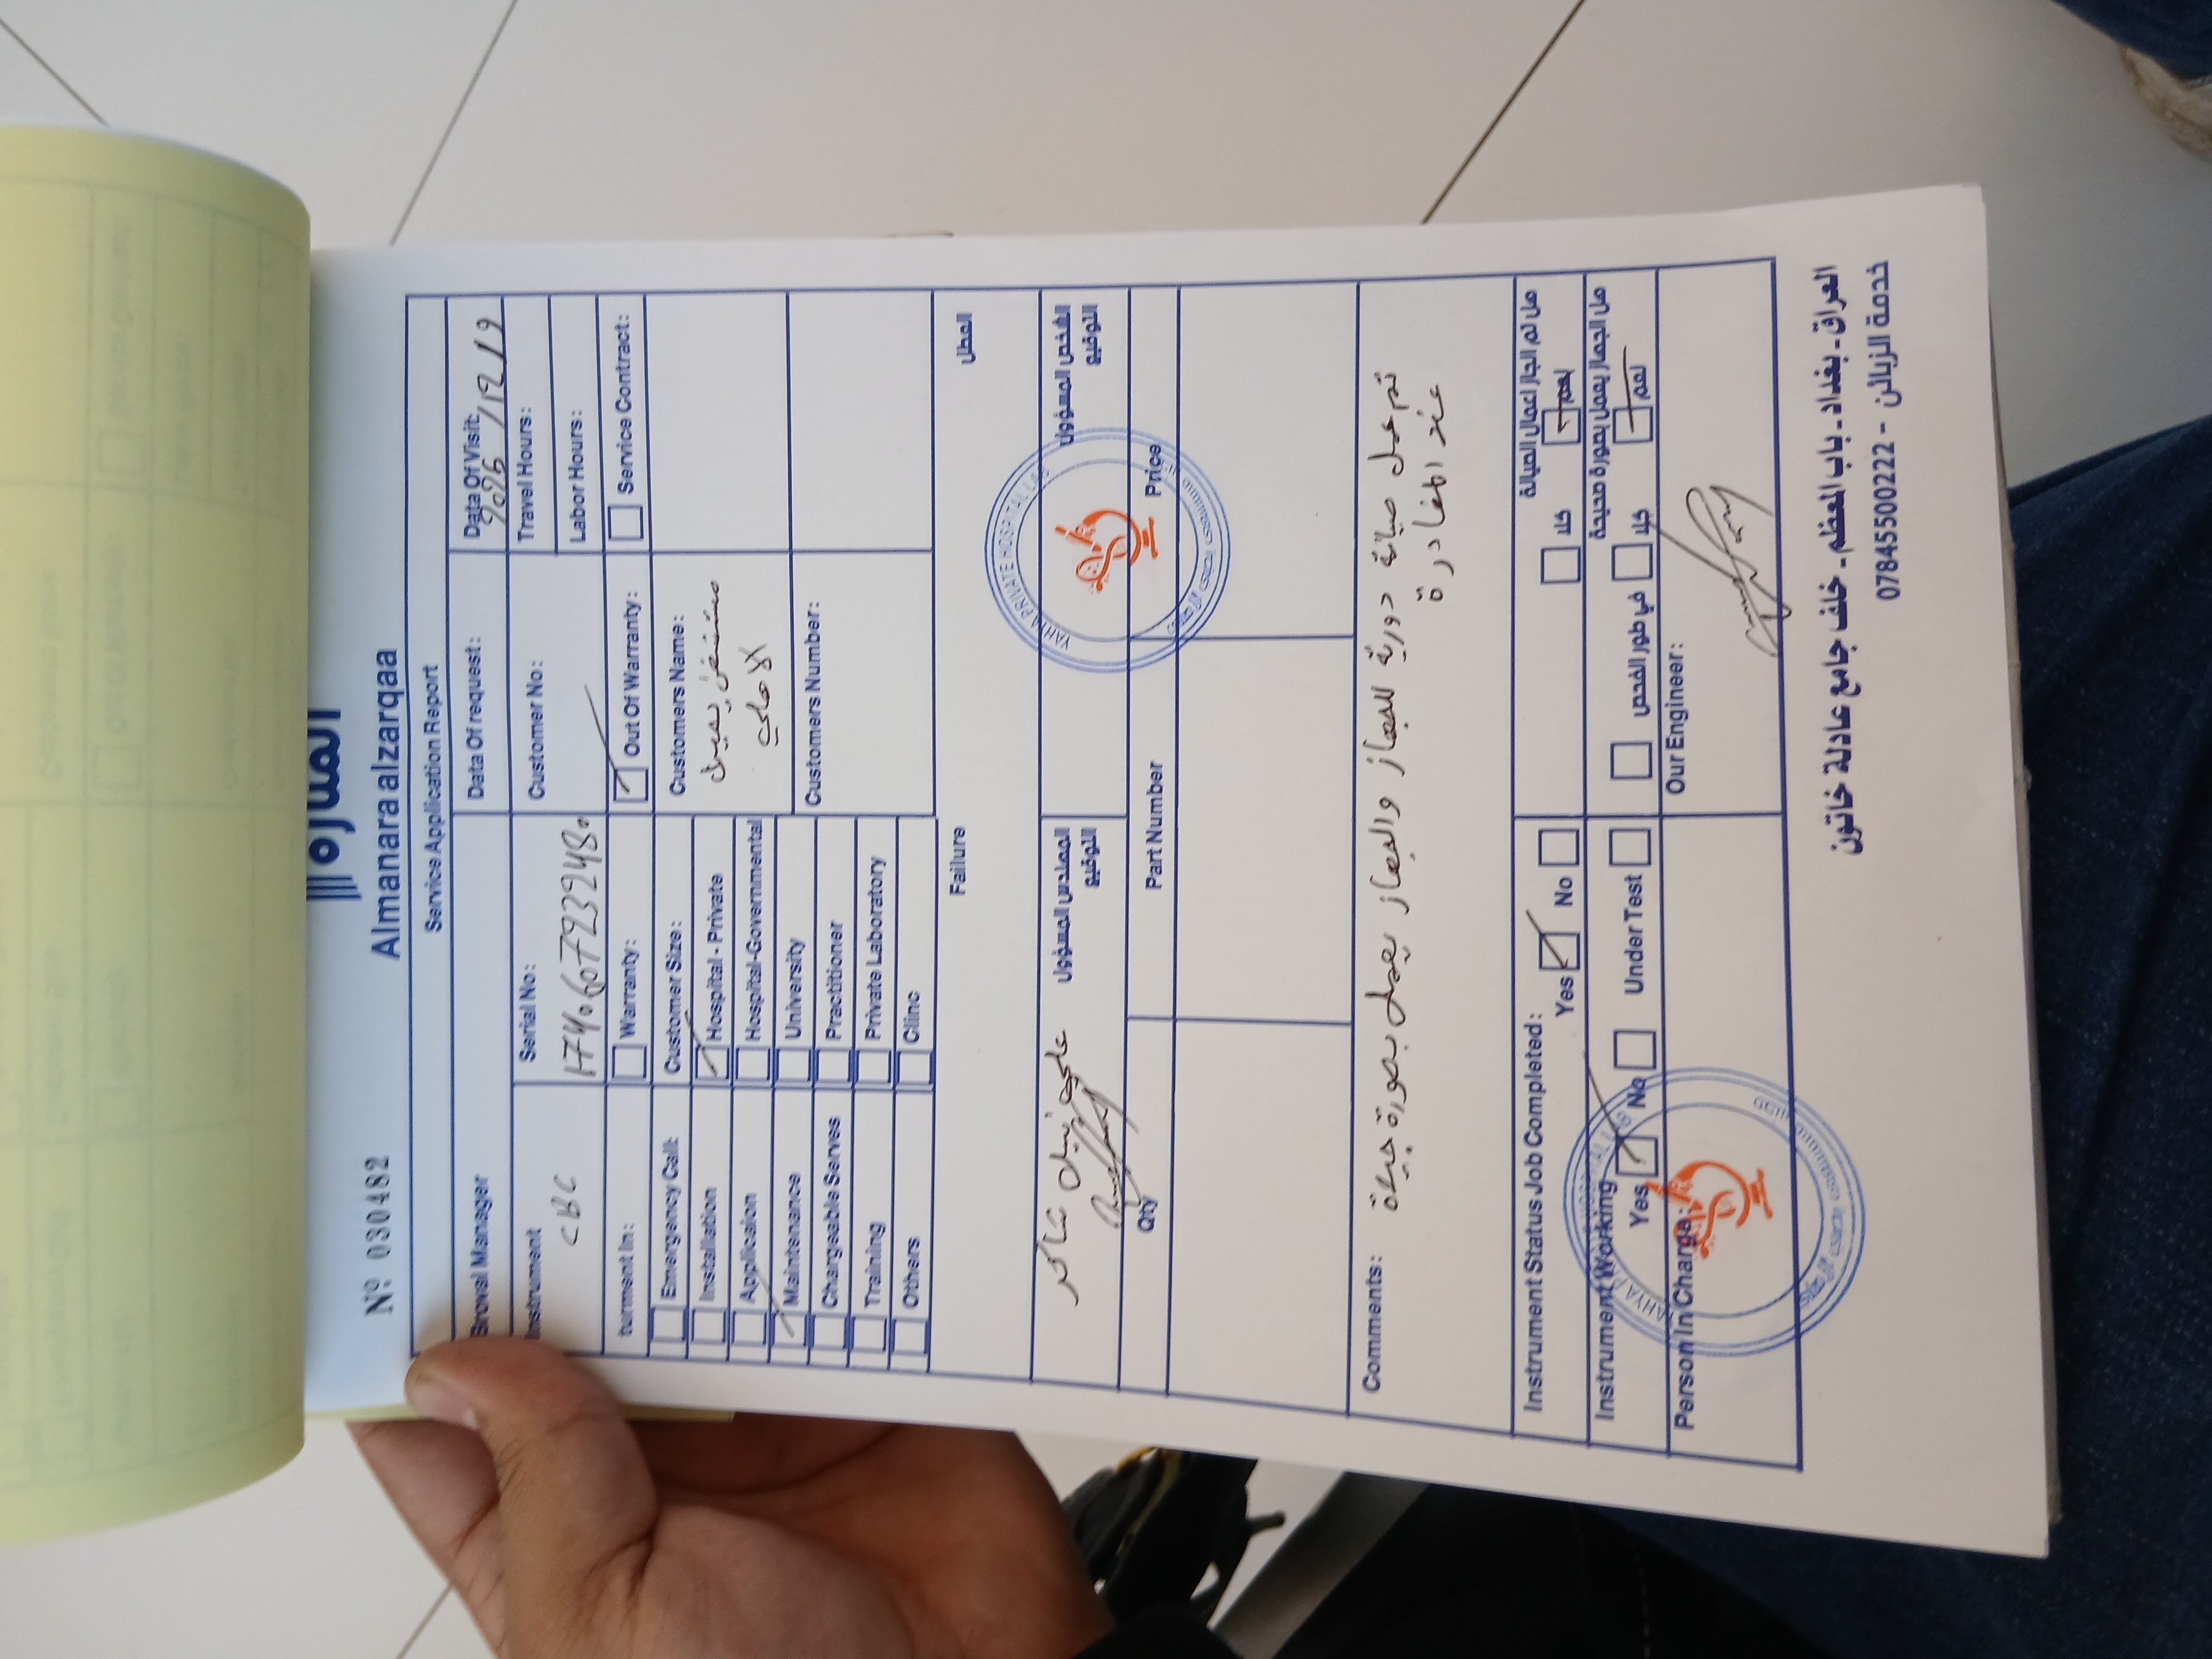 المنارة
Almanara alzarqaa
Nº 030482
Service Application Report
Broval Manager
Data Of request:
Data Of Visit:
/12/9
Instrument
CBC
Serial No:
Customer No:
Travel Hours:
Labor Hours:
turment In:
Warranty:
Out Of Warranty:
Service Contract:
Emergency Call:
Customer Size:
Customers Name:
مستشفى يحيى
الاهلي
Installation
Hospital - Private
Applicaion
Hospital-Governmental
Maintenance
University
Customers Number:
Chargeable Serves
Practitioner
Training
Private Laboratory
Others
Clinc
Failure
العطل
المهندس المسؤول
التوقيع
الشخص المسؤول
التوقيع
YAHYA PRIVATE HOSPITAL LAB
Qty
Part Number
Price
Comments:
تم عمل صيانة دورية للجهاز والجهاز يعمل بصورة جيدة
عند المغادرة
Instrument Status Job Completed:
Yes No
هل تم انجاز اعمال الصيانة
نعم كلا
Instrument Working
Yes No Under Test
هل الجهاز يعمل بصورة صحيحة
نعم كلا في طور الفحص
Person In Charge:
Our Engineer:
العراق - بغداد - باب المعظم - خلف جامع عادلة خاتون
خدمة الزبائن - 07845500222